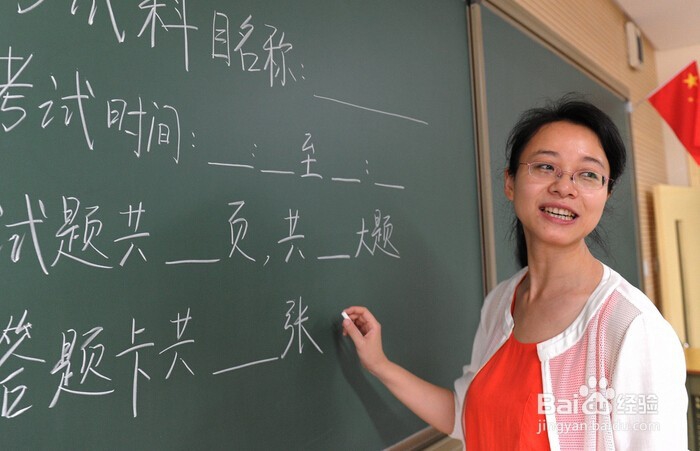 考试科目名称:____
考试时间:__:__至__:__
试题共__页,共__大题
答题卡共__张
Baidu 经验
jingyan.baidu.com